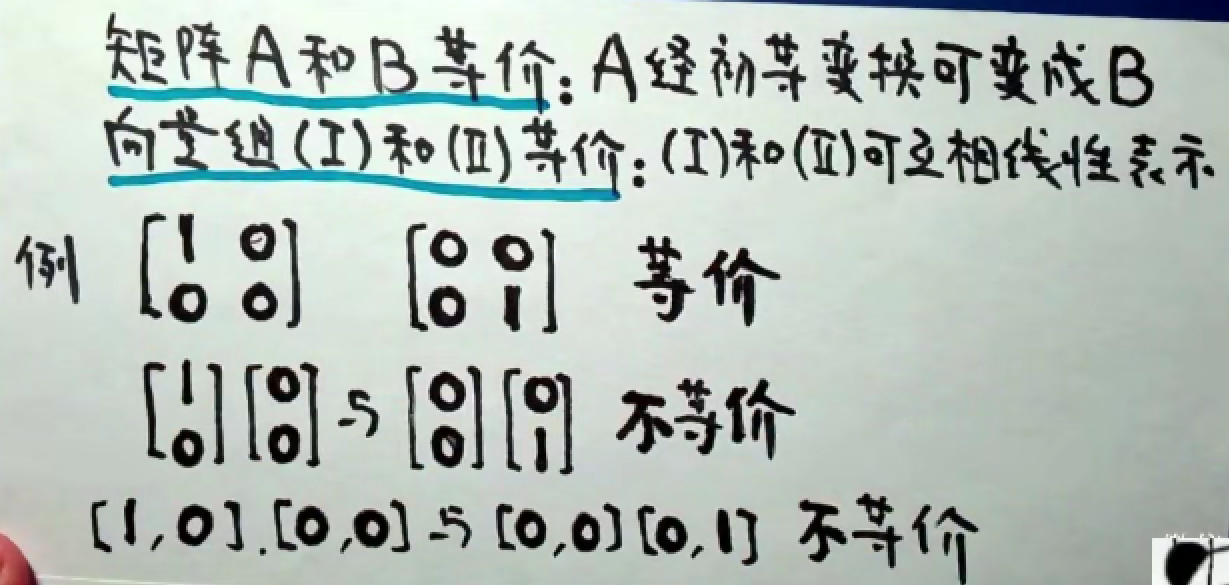 矩阵A和B等价:A经初等变换可变成B
向量组(I)和(II)等价:(I)和(II)可互相线性表示
例 [1 0 [0 0 等价
0 0] 0 1]
[1 [0 与 [0 [0 不等价
0] 0] 0] 1]
[1,0].[0,0]与[0,0][0,1] 不等价